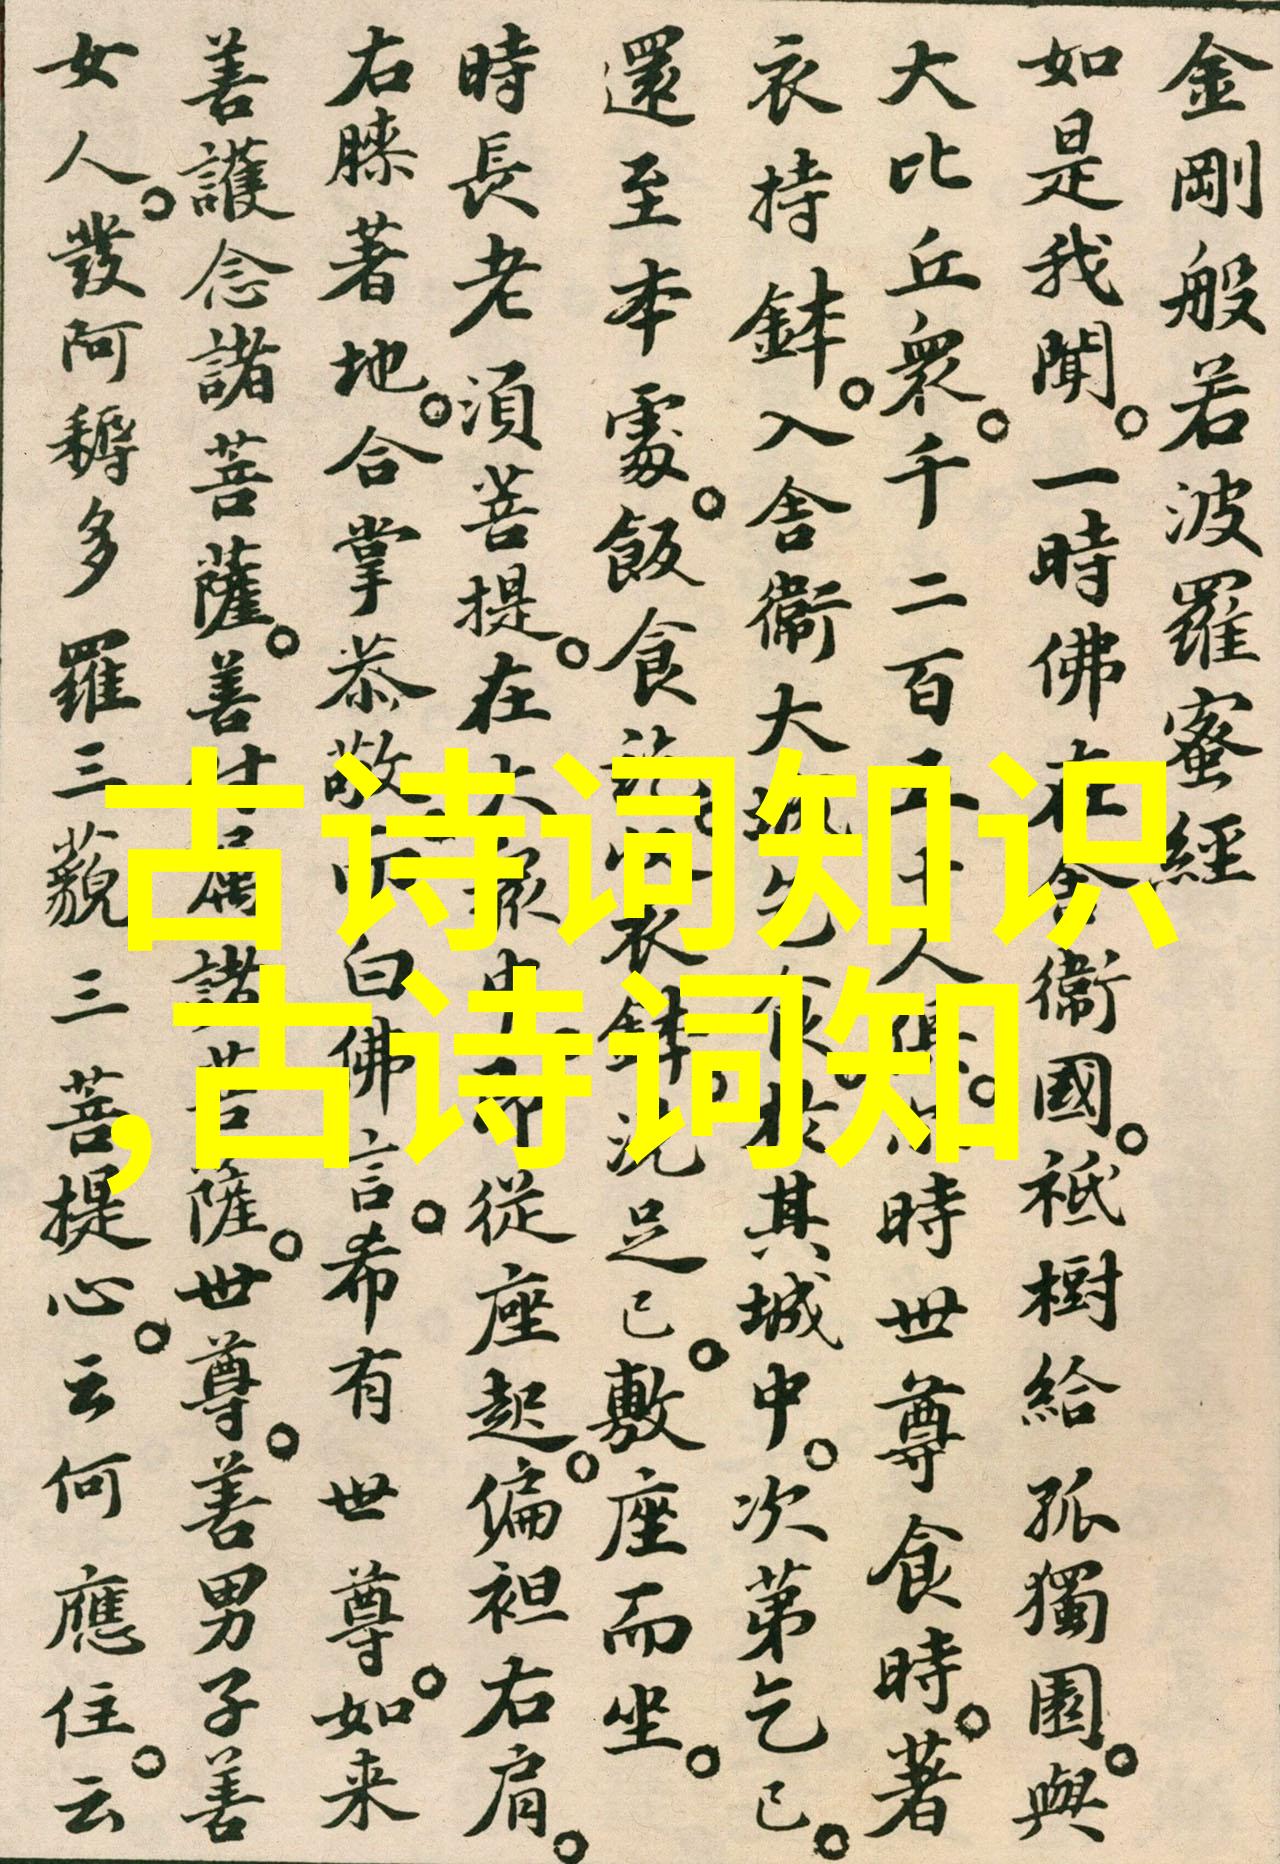 金剛般若波羅蜜經
如是我聞。一時佛在舍衞國。祇樹給孤獨園。與
大比丘衆。千二百五十人俱。尒時世尊食時。著
衣持鉢。入舍衞大城乞食。於其城中。次第乞已。
還至本處。飯食訖。收衣鉢。洗足已。敷座而坐。
時長老須菩提。在大衆中。即從座起。偏袒右肩。
右膝著地。合掌恭敬。而白佛言。希有世尊。如来
善護念諸菩薩。善付属諸菩薩。世尊。善男子善
女人。發阿耨多羅三藐三菩提心。云何應住。云
古诗词知识
,古诗词知